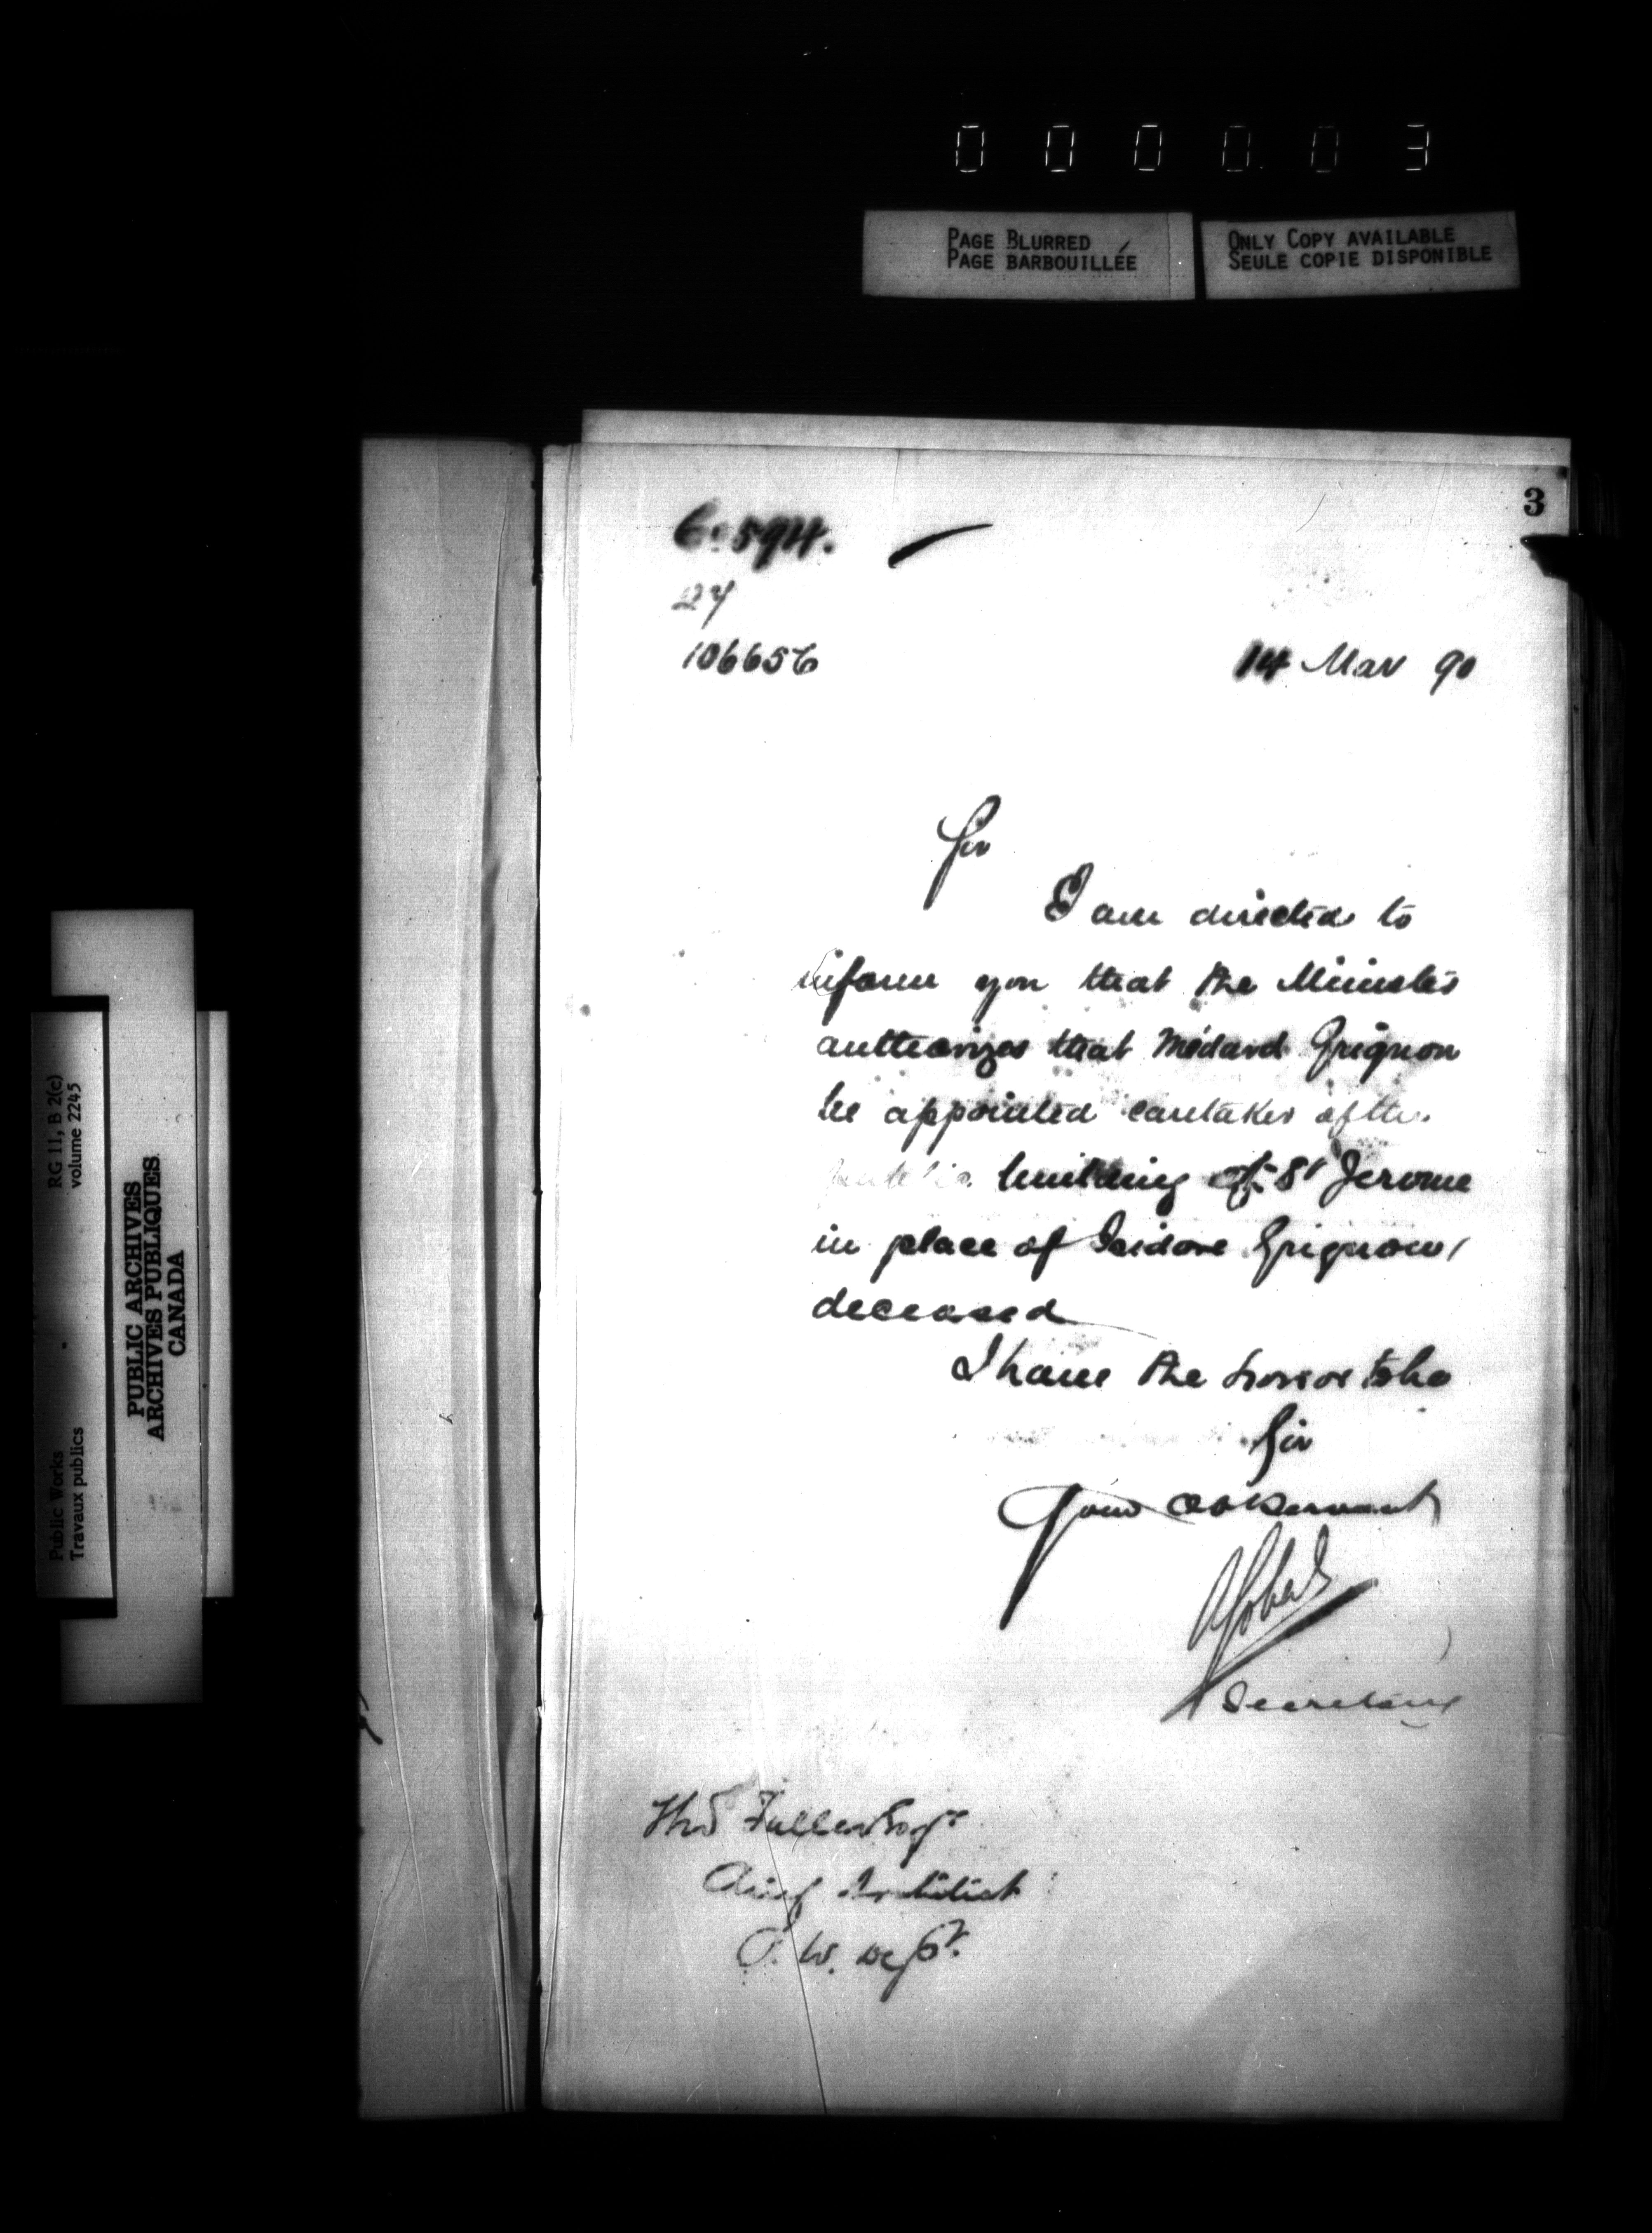 000003
PAGE BLURRED
PAGE BARBOUILLÉE
ONLY COPY AVAILABLE
SEULE COPIE DISPONIBLE
3
594.
27
106656
14 Mar 90
Sir
I am directed to
inform you that the Minister
authorizes that Médard Grignon
be appointed caretaker of the
public building of St Jerome
in place of Isidore Grignon,
deceased
I have the honor to be
Sir
Your Ob Servant
Secretary
Thos Fuller Esqr
Chief Architect
P. W. Dept.
RG 11, B 2(c)
volume 2245
PUBLIC ARCHIVES
ARCHIVES PUBLIQUES
CANADA
Public Works
Travaux publics